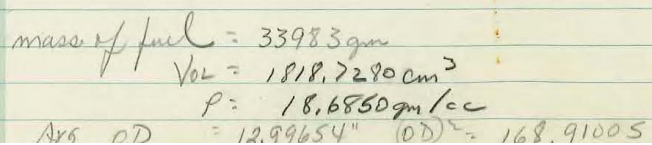 mass of fuel = 33983 gm
VOL = 1818.7280 cm³
ρ = 18.6850 gm/cc
Avg OD = 12.99654" (OD)² = 168.91005